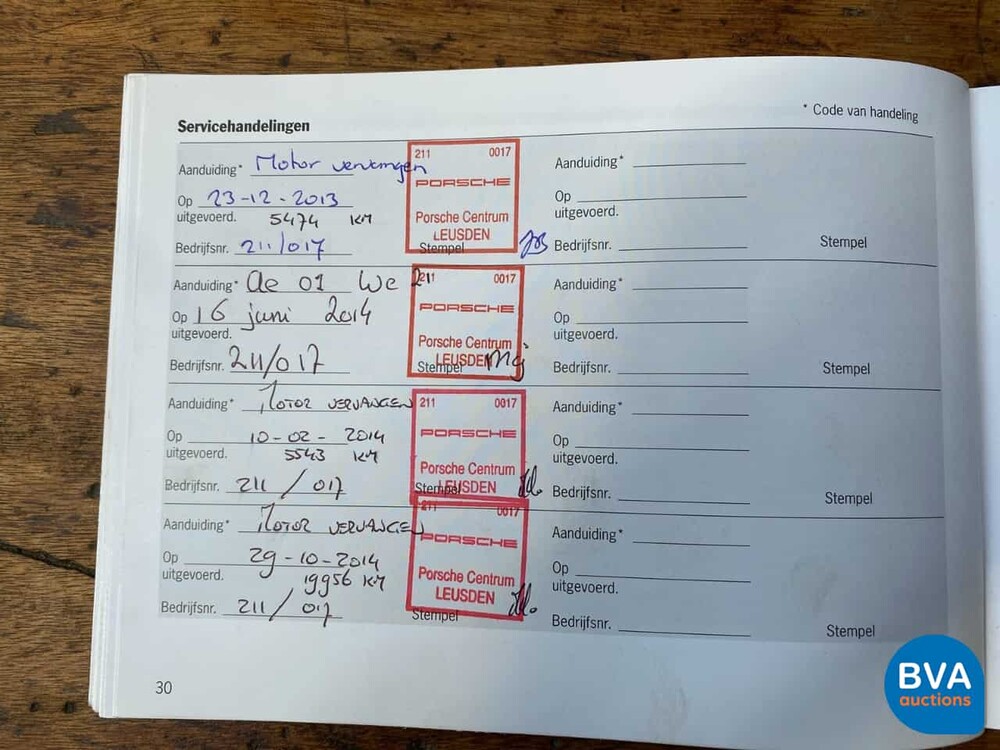 * Code van handeling
Servicehandelingen
Aanduiding* Motor vervangen
Op 23-12-2013
uitgevoerd. 5474 KM
Bedrijfsnr. 211/017
211 0017
PORSCHE
Porsche Centrum
LEUSDEN
Stempel
Aanduiding*
Op
uitgevoerd.
Bedrijfsnr.
Stempel
Aanduiding* ae 01 we 21
Op 16 juni 2014
uitgevoerd.
Bedrijfsnr. 211/017
211 0017
PORSCHE
Porsche Centrum
LEUSDEN
Stempel
Aanduiding*
Op
uitgevoerd.
Bedrijfsnr.
Stempel
Aanduiding* MOTOR VERVANGEN
Op 10-02-2014
uitgevoerd. 5543 KM
Bedrijfsnr. 211 / 017
211 0017
PORSCHE
Porsche Centrum
LEUSDEN
Stempel
Aanduiding*
Op
uitgevoerd.
Bedrijfsnr.
Stempel
Aanduiding* MOTOR VERVANGEN
Op 29-10-2014
uitgevoerd. 19956 KM
Bedrijfsnr. 211 / 017
211 0017
PORSCHE
Porsche Centrum
LEUSDEN
Stempel
Aanduiding*
Op
uitgevoerd.
Bedrijfsnr.
Stempel
30
BVA
auctions